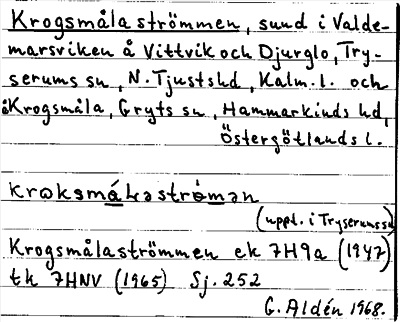 Krogsmåla strömmen, sund i Valde-
marsviken å Vittvik och Djurglo, Try-
serums sn, N. Tjusts hd, Kalm. l. och
å Krogsmåla, Gryts sn, Hammarkinds hd,
Östergötlands l.
(uppt. i Tryserums sn
Krogsmålaströmmen ek 7H9a (1947)
tk 7HNV (1965) Sj. 252
G. Aldén 1968.